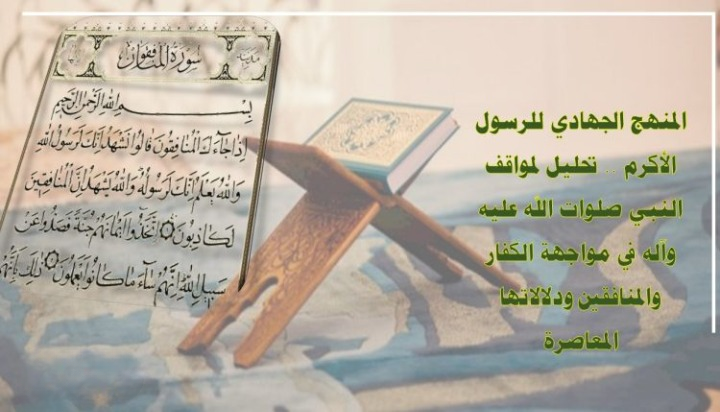 سورة المنافقون
بسم الله الرحمن الرحيم
إذا جاءك المنافقون قالوا نشهد إنك لرسول الله
والله يعلم إنك لرسوله والله يشهد إن المنافقين
لكاذبون اتخذوا أيمانهم جنة فصدوا عن
سبيل الله إنهم ساء ما كانوا يعملون ذلك بأنهم
المنهج الجهادي للرسول
الأكرم .. تحليل لمواقف
النبي صلوات الله عليه
وآله في مواجهة الكفار
والمنافقين ودلالاتها
المعاصرة